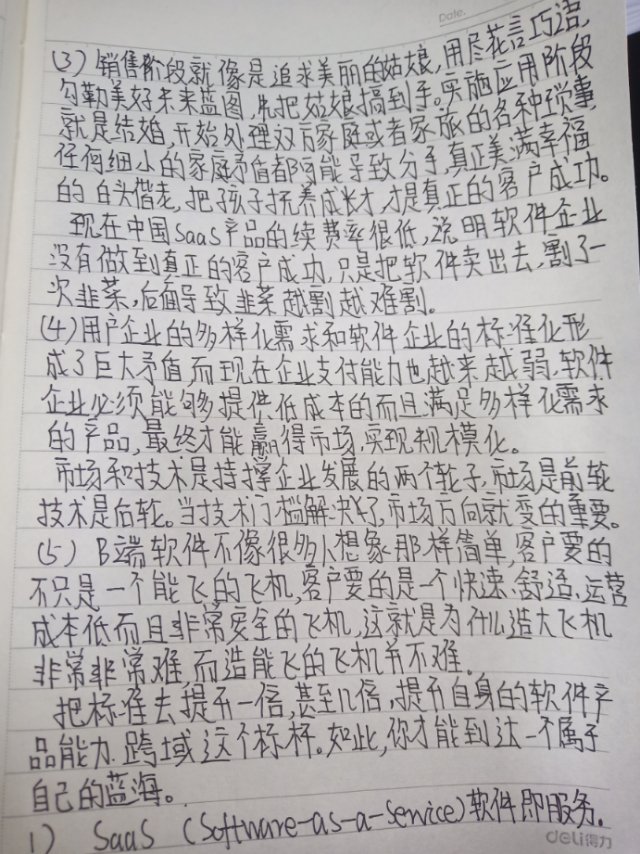 Date.
(3) 销售阶段就像是追求美丽的姑娘,用尽花言巧语,
勾勒美好未来蓝图,先把姑娘搞到手。实施应用阶段
就是结婚,开始处理双方家庭或者家族的各种琐事,
任何细小的家庭矛盾都可能导致分手,真正美满幸福
的白头偕老,把孩子抚养成长才,才是真正的客户成功。
现在中国SaaS产品的续费率很低,说明软件企业
没有做到真正的客户成功,只是把软件卖出去,割了一
次韭菜,后面导致韭菜越割越难割。
(4)用户企业的多样化需求和软件企业的标准化形
成了巨大矛盾,而现在企业支付能力也越来越弱,软件
企业必须能够提供低成本的而且满足多样化需求
的产品,最终才能赢得市场,实现规模化。
市场和技术是持撑企业发展的两个轮子,市场是前轮
技术是后轮。当技术门槛解决了,市场方向就变的重要。
(5) B端软件不像很多人想象那样简单,客户要的
不只是一个能飞的飞机,客户要的是一个快速、舒适、运营
成本低而且非常安全的飞机,这就是为什么造大飞机
非常非常难,而造能飞的飞机并不难。
把标准去提升一倍,甚至几倍,提升自身的软件产
品能力,跨域这个标杆。如此,你才能到达一个属于
自己的蓝海。
1) SaaS (Software-as-a-Service)软件即服务。
deli得力